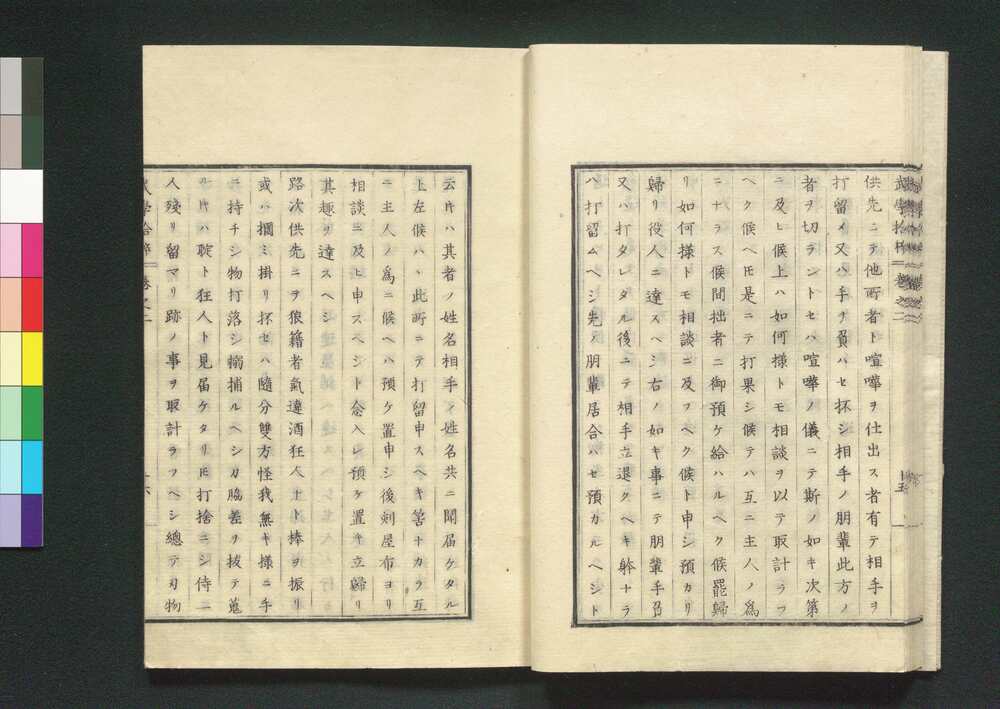 武學拾粹 卷之二
十五
供先ニテ他所者ト喧嘩ヲ仕出ス者有テ相手ヲ
打留メ又ハ手ヲ負ハセ抔シ相手ノ朋輩此方ノ
者ヲ切ラントセハ喧嘩ノ儀ニテ斯ノ如キ次第
ニ及ヒ候上ハ如何樣トモ相談ヲ以テ取計ラフ
ヘク候ヘ𪜈是ニテ打果シ候テハ互ニ主人ノ爲
ニナラス候間拙者ニ御預ケ給ハルヘク候罷歸
リ如何樣トモ相談ニ及フヘク候ト申シ預カリ
歸リ役人ニ達スヘシ右ノ如キ事ニテ朋輩手負
又ハ打タレタル後ニテ相手立退クヘキ躰ナラ
ハ打留ムヘシ先ノ朋輩居合ハセ預カルヘシト
云𪜈ハ其者ノ姓名相手ノ姓名共ニ聞届ケタル
上左候ハヽ此所ニテ打留申スヘキ筈ナカラ互
ニ主人ノ爲ニ候ヘハ預ケ置申シ後刻屋布ヨリ
相談ニ及ヒ申スヘシト念入レ預ケ置キ立歸リ
其趣ヲ達スヘシ
路次供先ニヲ狼籍者氣違酒狂人ナト棒ヲ振リ
或ハ摑ミ掛リ抔セハ隨分雙方怪我無キ樣ニ手
ニ持チシ物打落シ搦捕ルヘシ刀脇差ヲ拔テ
ハ聢ト狂人ト見届ケタリ𪜈打捨ニシ侍一
人殘リ留マリ跡ノ事ヲ取計ラフヘシ總テ刃物
武學拾粹 卷之二